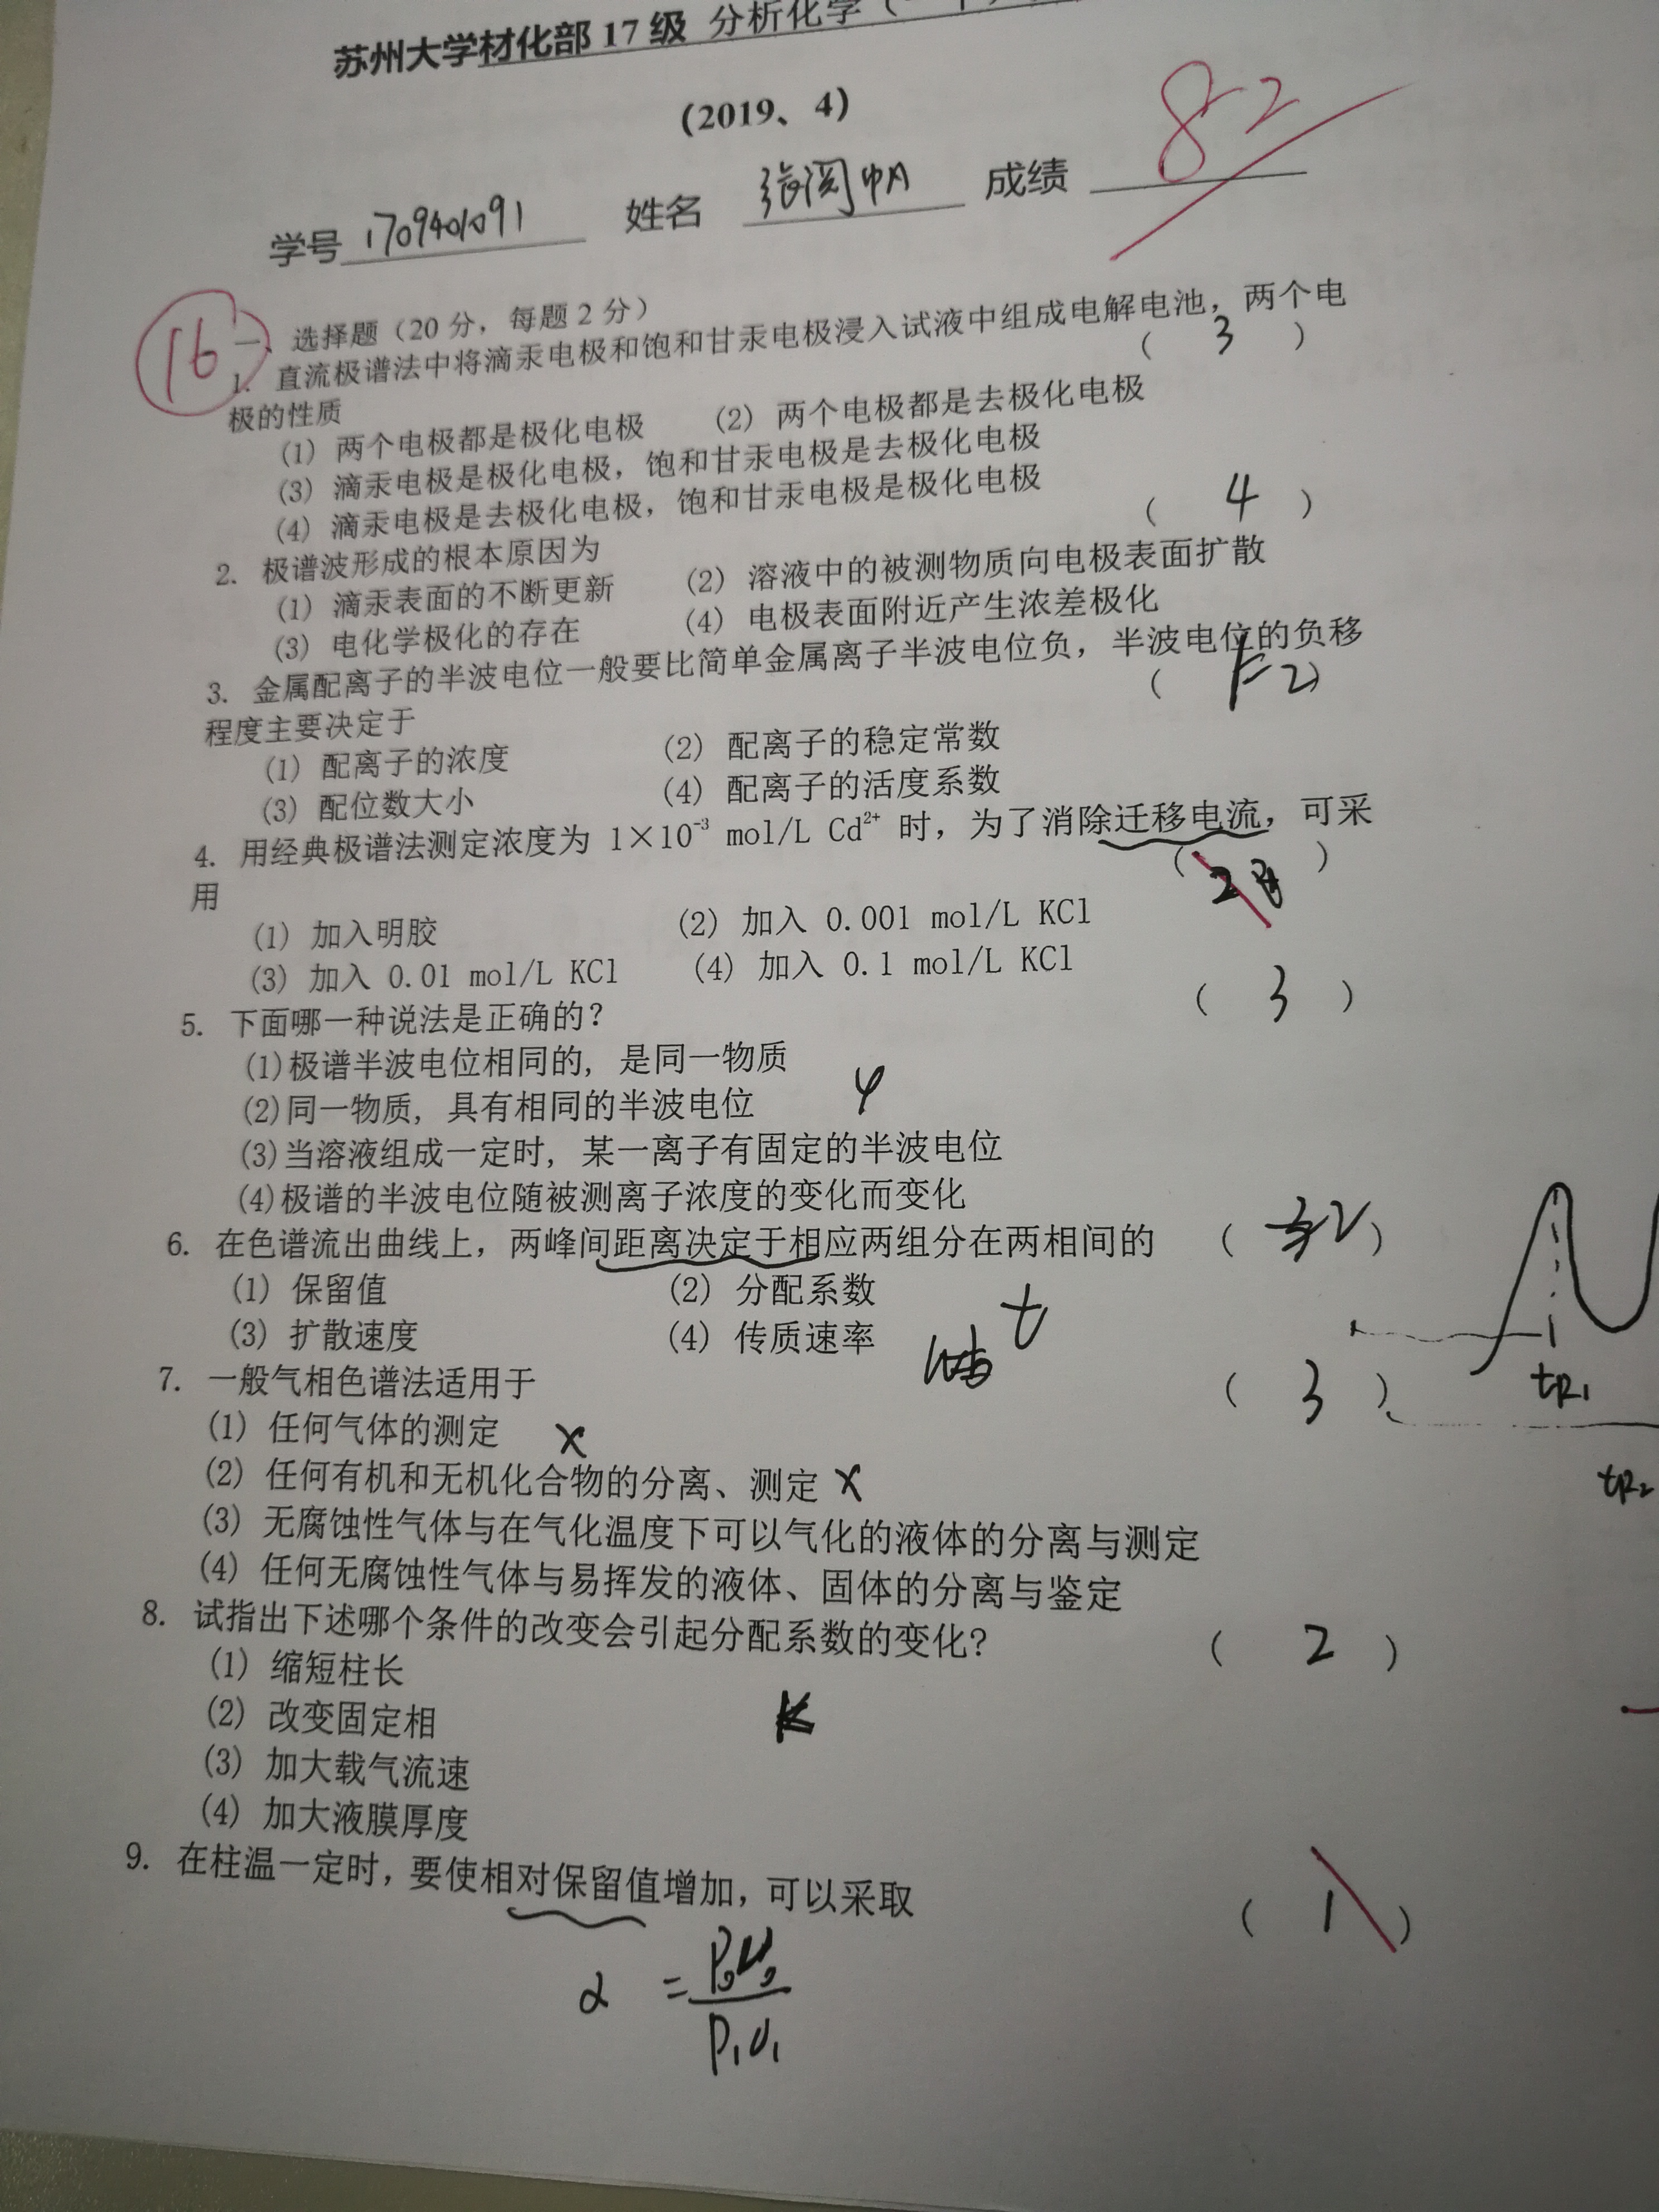 苏州大学材化部 17 级 分析化学(
(2019、4)
学号 1709401091 姓名 张阅帆 成绩 82
16
一、选择题(20 分,每题 2 分)
1. 直流极谱法中将滴汞电极和饱和甘汞电极浸入试液中组成电解电池,两个电
极的性质 ( 3 )
(1) 两个电极都是极化电极 (2) 两个电极都是去极化电极
(3) 滴汞电极是极化电极,饱和甘汞电极是去极化电极
(4) 滴汞电极是去极化电极,饱和甘汞电极是极化电极
2. 极谱波形成的根本原因为 ( 4 )
(1) 滴汞表面的不断更新 (2) 溶液中的被测物质向电极表面扩散
(3) 电化学极化的存在 (4) 电极表面附近产生浓差极化
3. 金属配离子的半波电位一般要比简单金属离子半波电位负,半波电位的负移
程度主要决定于 ( 2 )
(1) 配离子的浓度 (2) 配离子的稳定常数
(3) 配位数大小 (4) 配离子的活度系数
4. 用经典极谱法测定浓度为 1×10⁻³ mol/L Cd²⁺ 时,为了消除迁移电流,可采
用 ( 2 )
(1) 加入明胶 (2) 加入 0.001 mol/L KCl
(3) 加入 0.01 mol/L KCl (4) 加入 0.1 mol/L KCl
5. 下面哪一种说法是正确的? ( 3 )
(1)极谱半波电位相同的, 是同一物质
(2)同一物质, 具有相同的半波电位 φ
(3)当溶液组成一定时, 某一离子有固定的半波电位
(4)极谱的半波电位随被测离子浓度的变化而变化
6. 在色谱流出曲线上,两峰间距离决定于相应两组分在两相间的 ( 2 )
(1) 保留值 (2) 分配系数
(3) 扩散速度 (4) 传质速率 t
tR₁
7. 一般气相色谱法适用于 ( 3 )
(1) 任何气体的测定 ×
(2) 任何有机和无机化合物的分离、测定 ×
tR₂
(3) 无腐蚀性气体与在气化温度下可以气化的液体的分离与测定
(4) 任何无腐蚀性气体与易挥发的液体、固体的分离与鉴定
8. 试指出下述哪个条件的改变会引起分配系数的变化? ( 2 )
(1) 缩短柱长
(2) 改变固定相 K
(3) 加大载气流速
(4) 加大液膜厚度
9. 在柱温一定时,要使相对保留值增加,可以采取 ( 1 )
α =